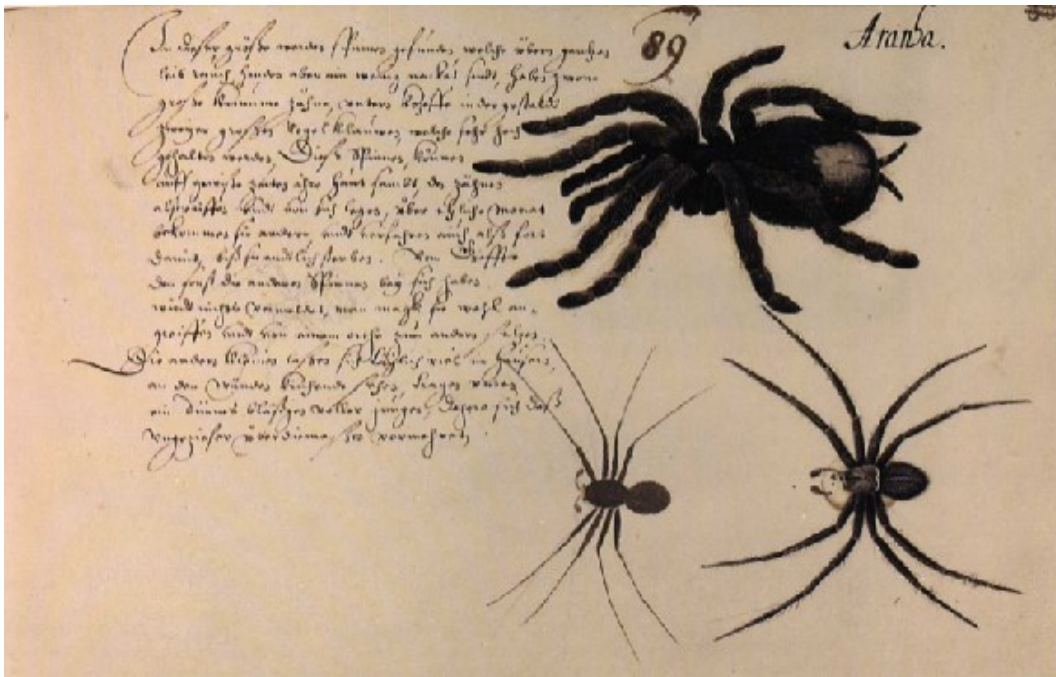 89
Aranha.
In dieser größe werden Spinnen gefunden welche übern gantzen
leib rauch, hinden aber ein wenig nackat sindt, haben zween
große krumme Zähne, unterm Kopffe in der gestaldt
zweyer großen Vogel Klauwen, welche sehr hoch
gehalten werden, Diese Spinnen, können
auff gewiße zeiten ihre Haut sambt den zähnen
abstreiffen undt von sich legen, über etzliche Monat
bekommen sie andere, undt verfahren auch also fort
damit, biß sie endtlich sterben. Vom Giffte
den sonst die anderen Spinnen bey sich haben,
wirdt nichts vermeldet, man magk sie wohl an,
greiffen undt von einem orthe zum andern
Die andern kleinen laßen sich täglich viel in Heusern,
an den Wänden kriechende sehen, tragen unten
ein dünnes bläßgen voller jungen, dahero sich daß
ungeziefer überdiemaßen vermehret.